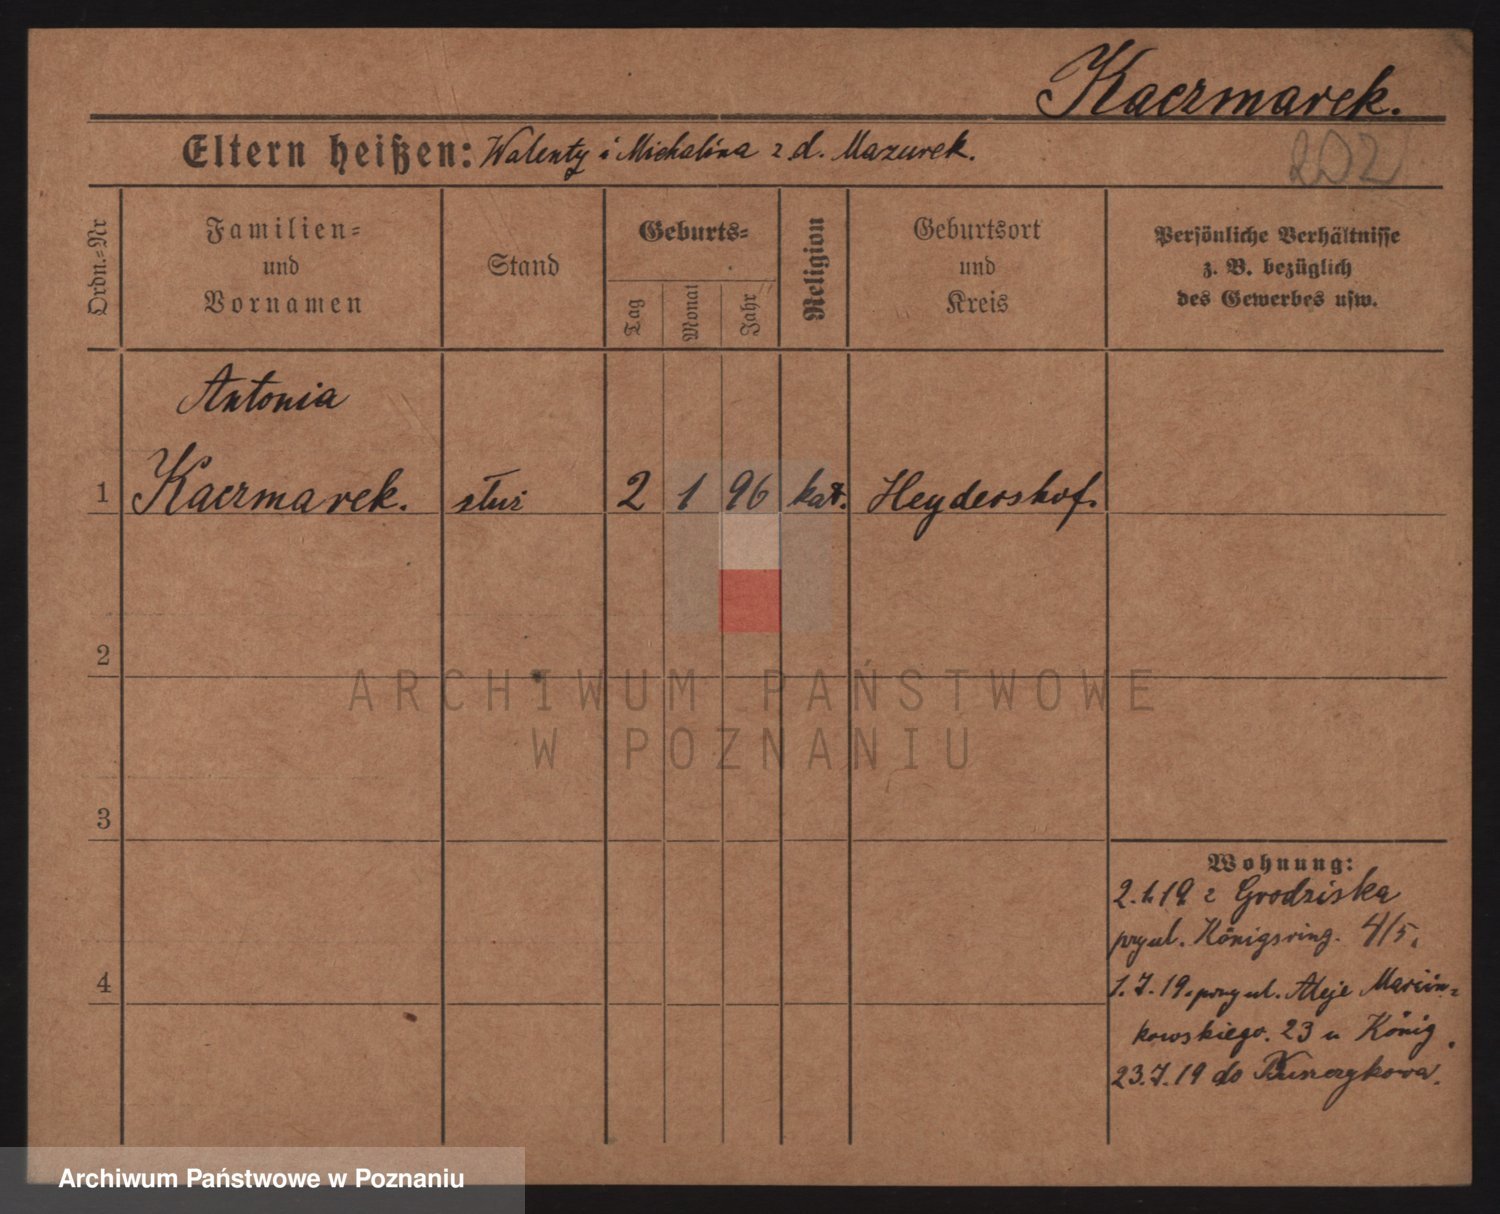 Kaczmarek.
202
Eltern heißen: Walenty i Michalina z d. Mazurek.
Ordn.-Nr
Familien-
und
Vornamen
Stand
Geburts-
Tag
Monat
Jahr
Religion
Geburtsort
und
Kreis
Persönliche Verhältnisse
z. B. bezüglich
des Gewerbes usw.
Antonia
1 Kaczmarek. służ 2 1 96 kat. Heydershof.
2
3
4
Wohnung:
2.1.19 z Grodziska
przy ul. Königsring. 4/5.
1.7.19. przy ul. Aleje Marcin-
kowskiego. 23 u König.
23.7.19 do
ARCHIWUM PAŃSTWOWE
W POZNANIU
Archiwum Państwowe w Poznaniu